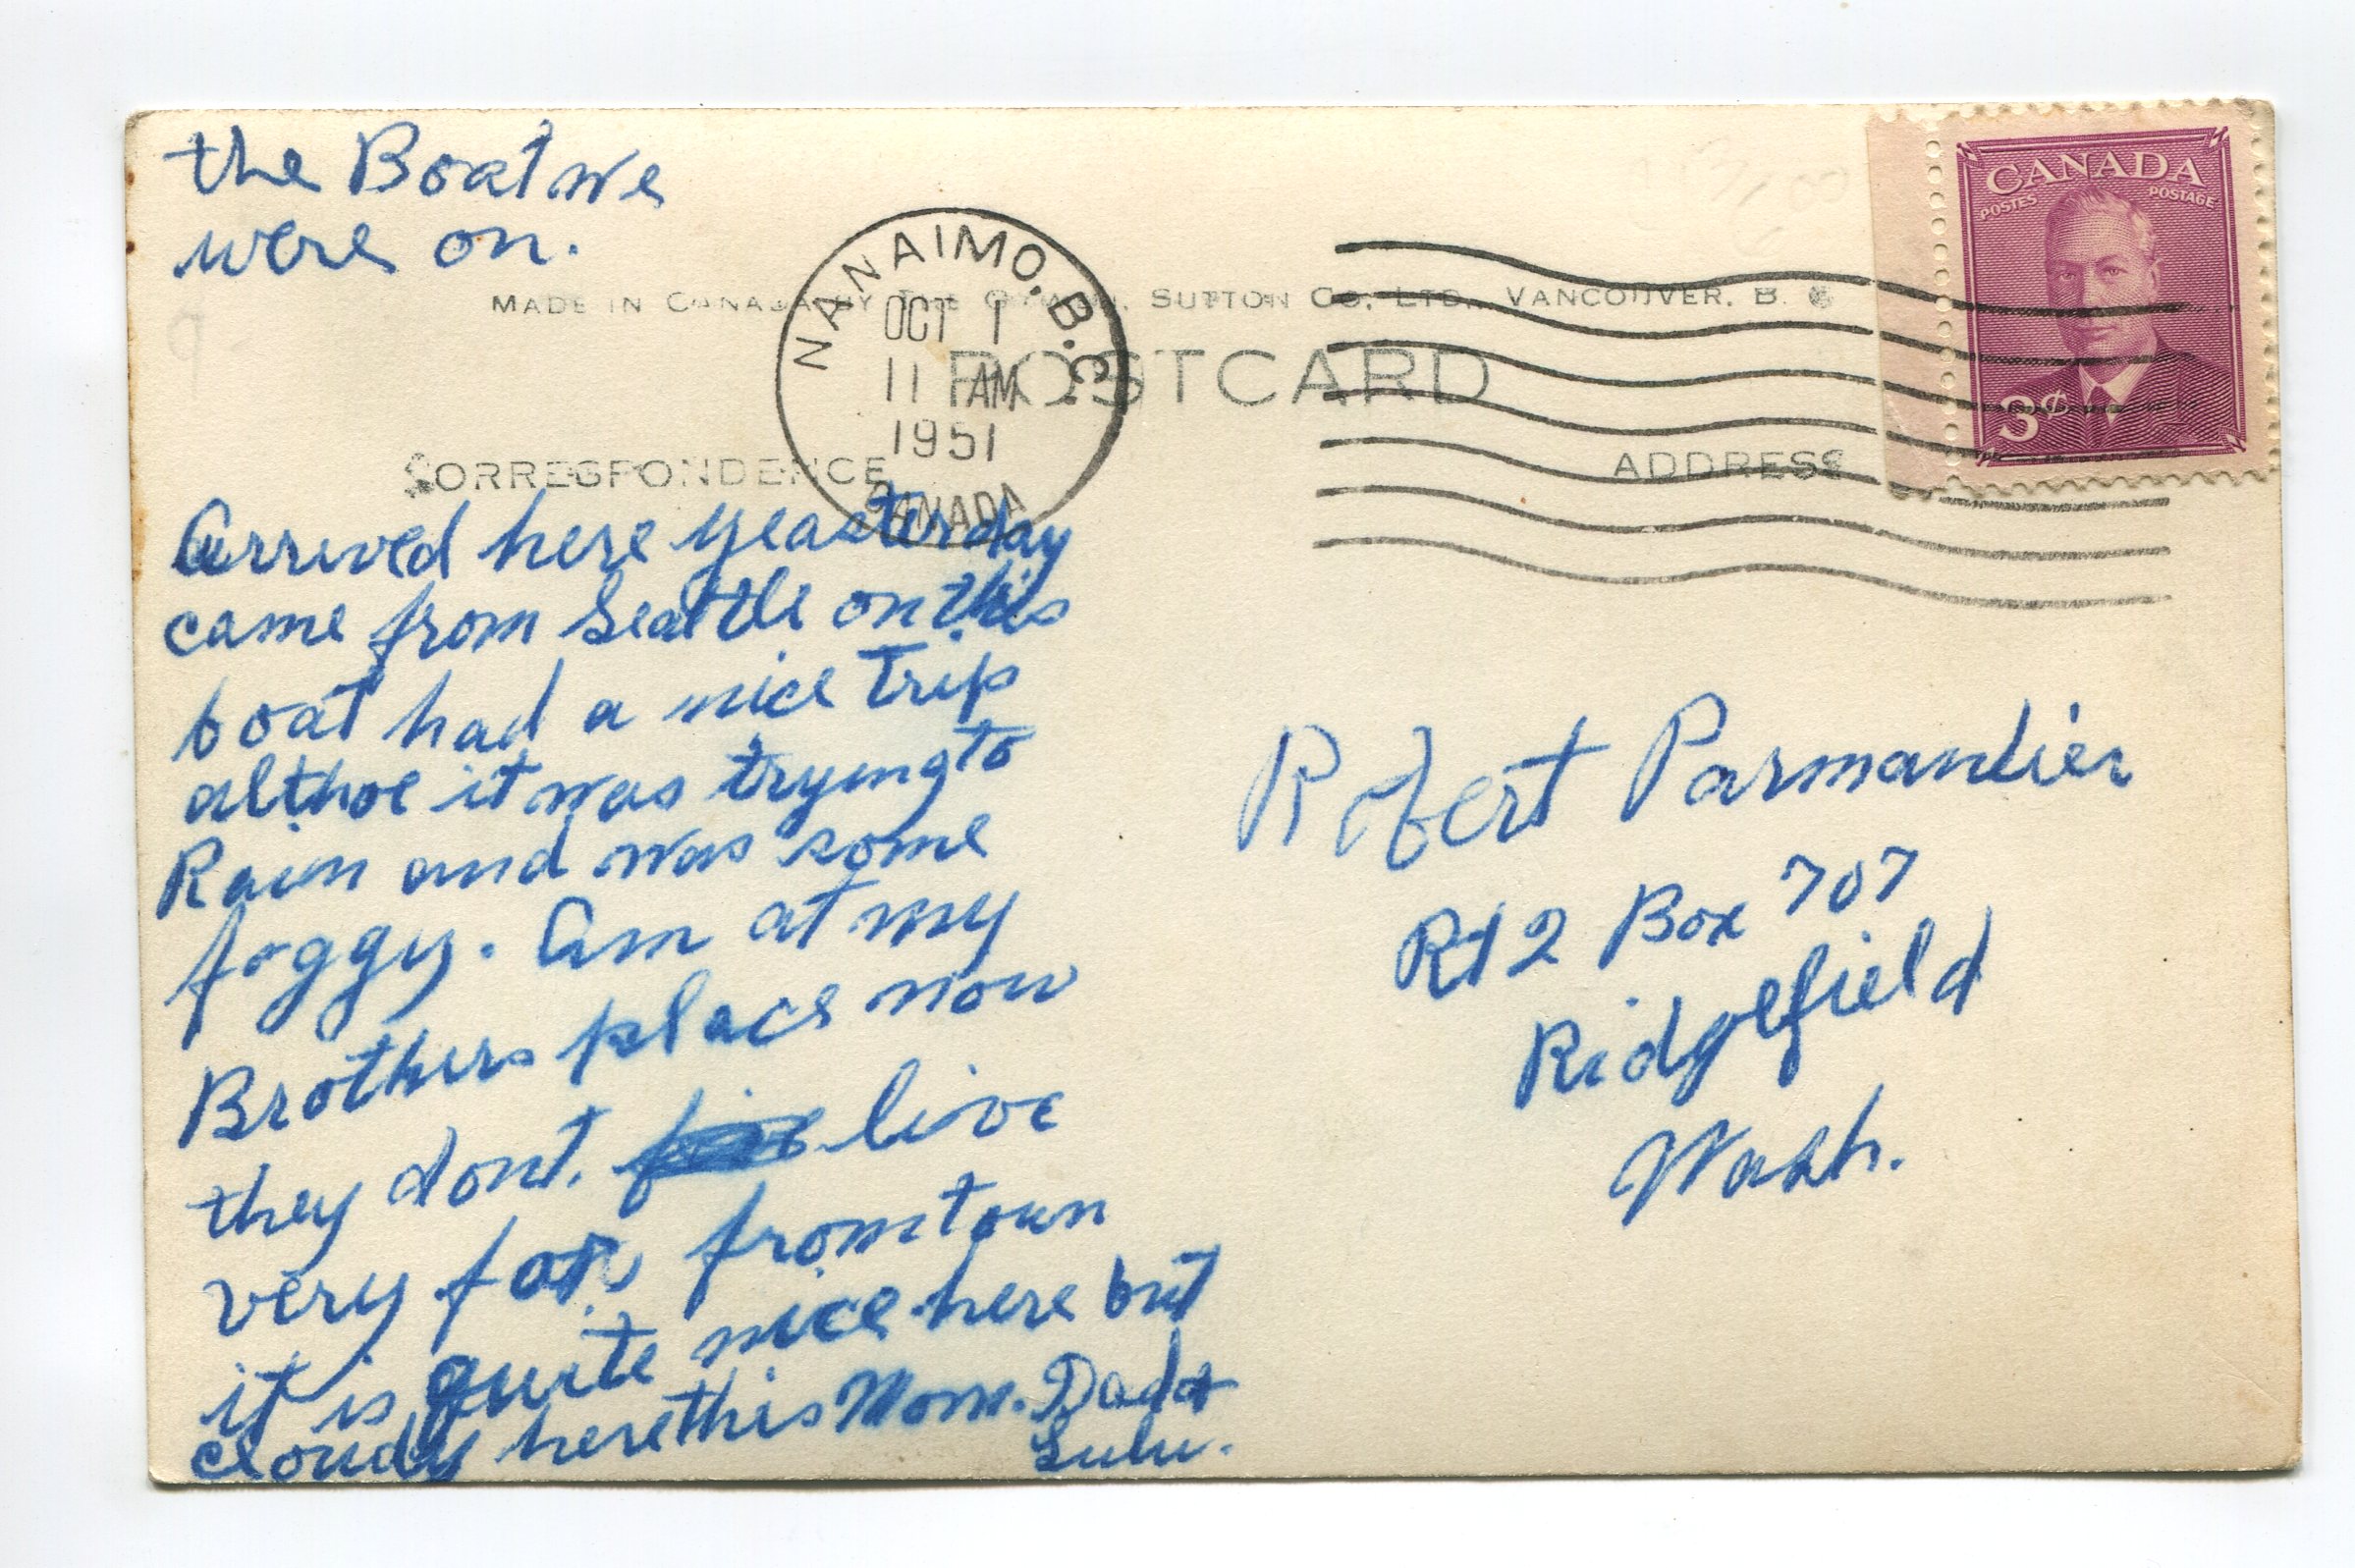 the Boat we
were on.
MADE IN CANADA BY THE SUTTON CO. LTD., VANCOUVER, B. C
POSTCARD
CORRESPONDENCE
ADDRESS
NANAIMO, B.C.
OCT 1
11 AM
1951
CANADA
CANADA
POSTES POSTAGE
3¢
Arrived here yeasterday
came from Seattle on this
boat had a nice Trip
althoe it was trying to
Rain and was some
foggy. Am at my
Brothers place now
they dont. live
very far from town
it is quite nice here but
cloudy here this Morn. Dad &
Lulu.
Robert Parmantier
Rt 2 Box 707
Ridgefield
Wash.